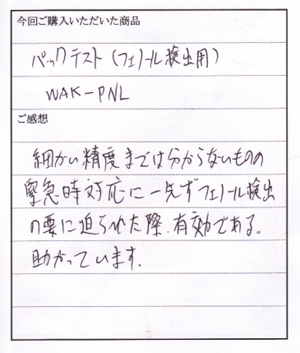 今回ご購入いただいた商品
パックテスト(フェノール検出用)
WAK-PNL
ご感想
細かい精度までは分からないものの
緊急時対応に一先ずフェノール検出
の要に迫られた際、有効である。
助かっています。